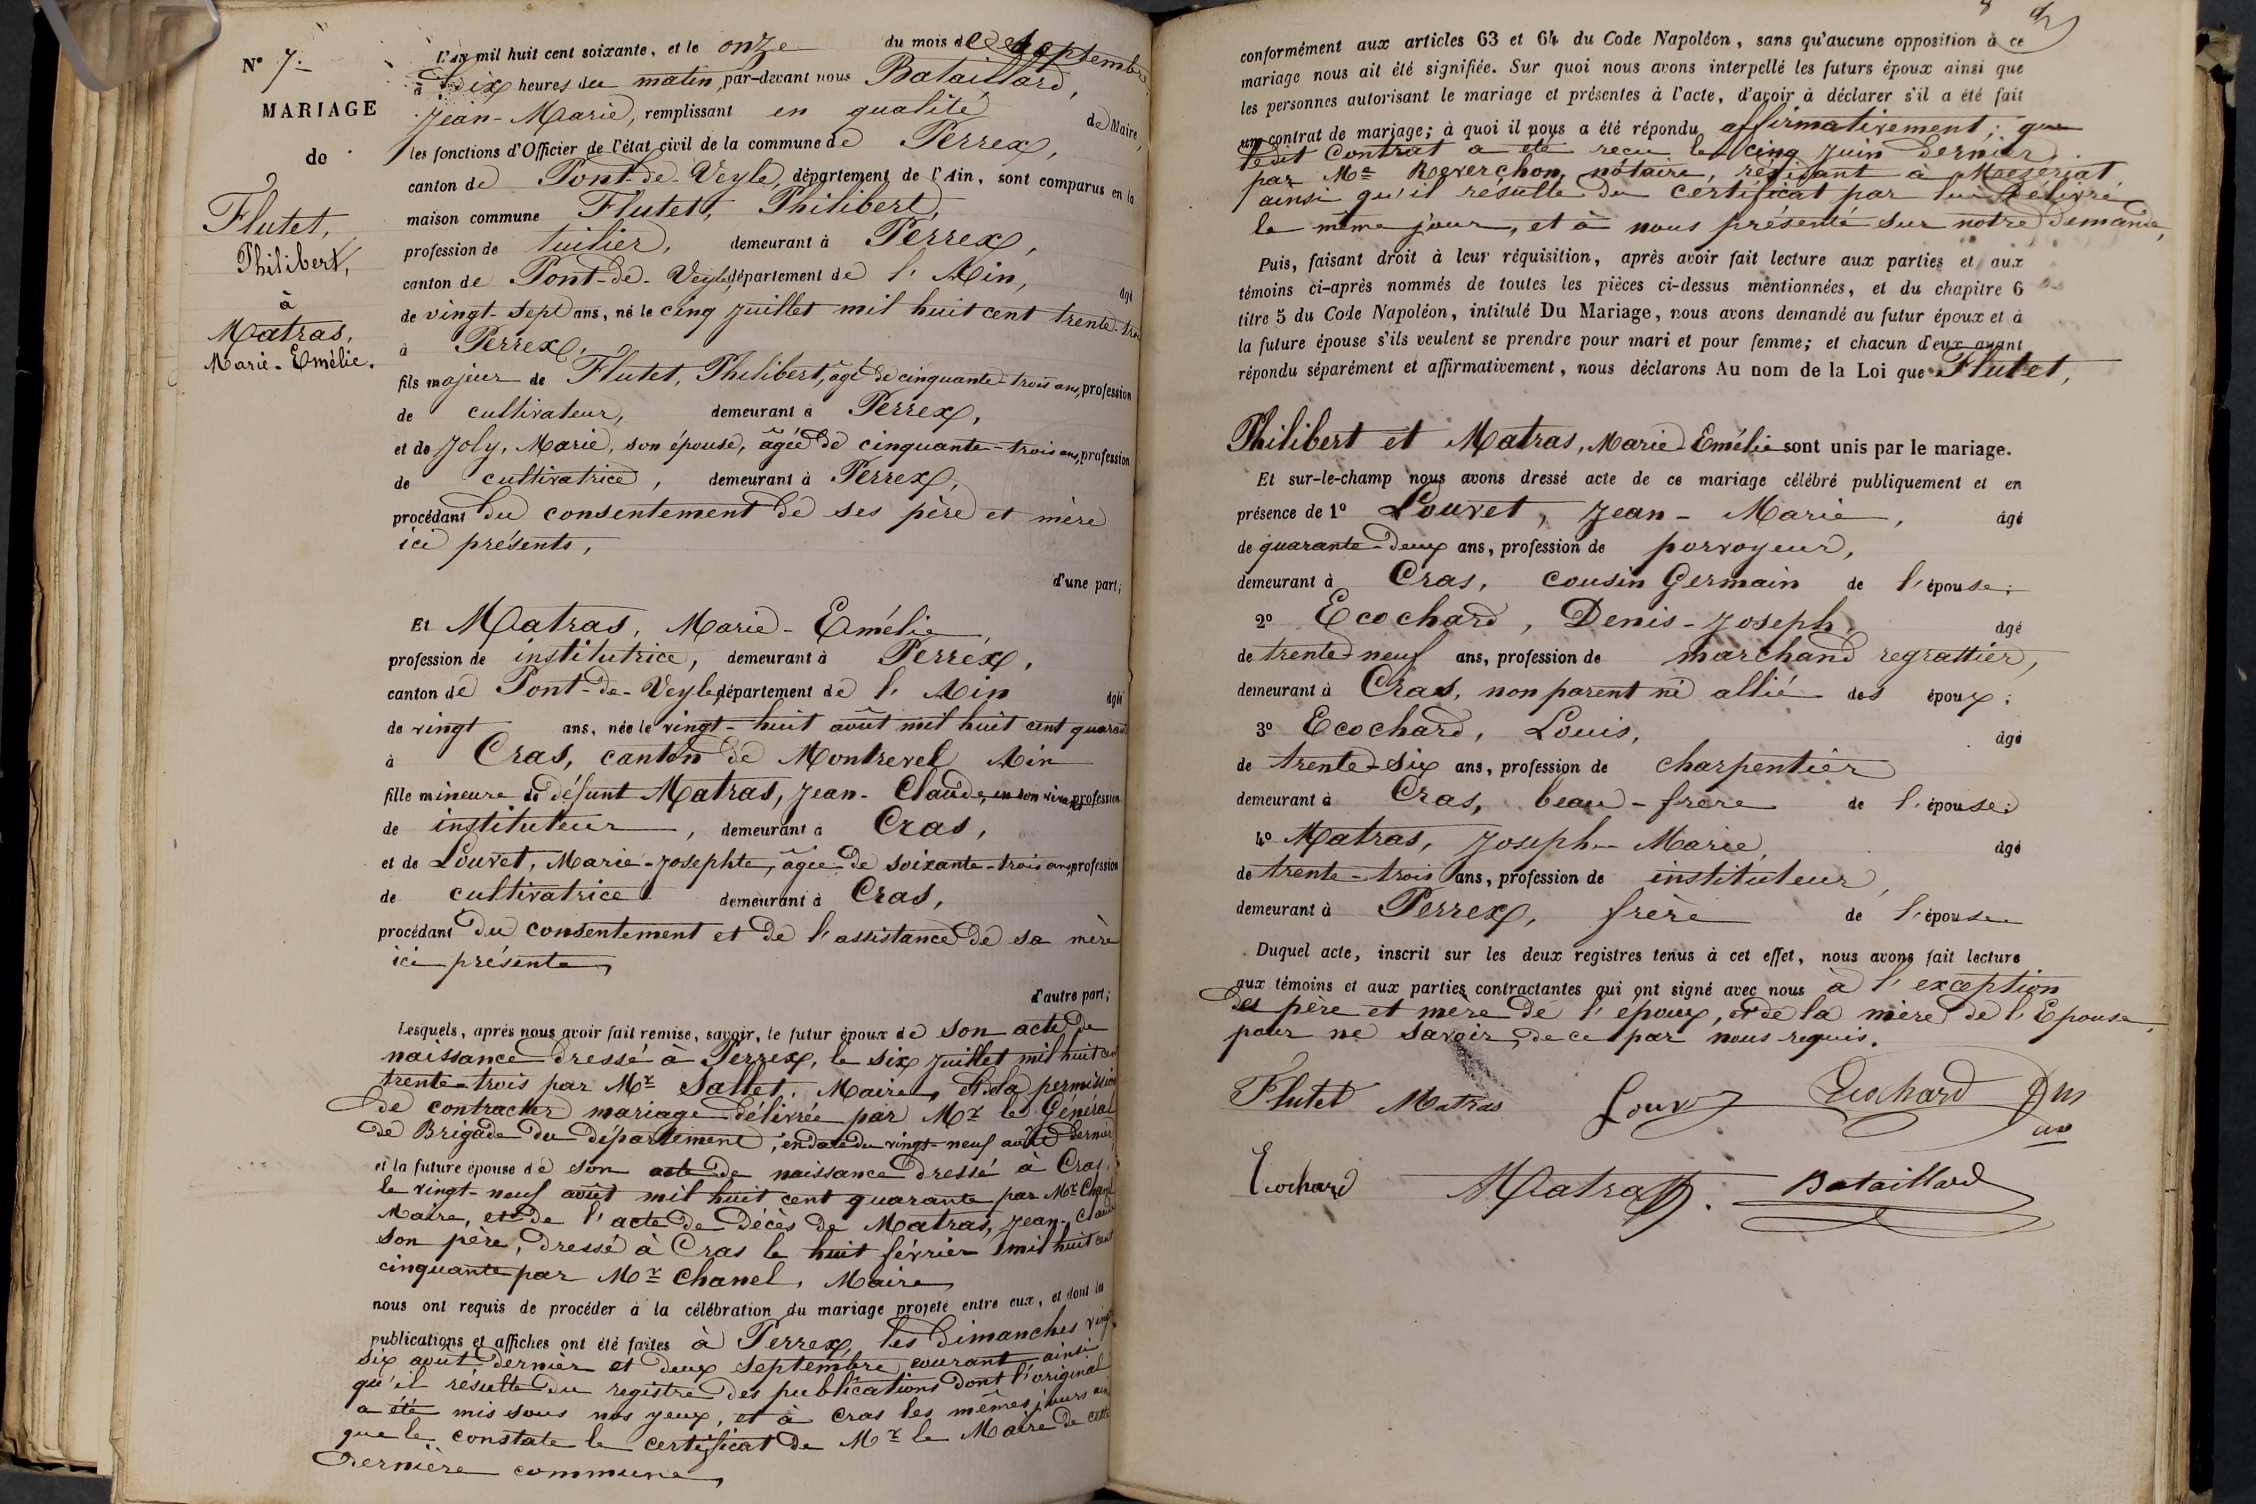 N° 7.
MARIAGE
de
Flutet,
Philibert,
à
Matras,
Marie-Emélie.
L'an mil huit cent soixante, et le onze du mois de Septembre
à dix heures du matin, par-devant nous Bataillard,
Jean-Marie, remplissant en qualité de Maire,
les fonctions d'Officier de l'état civil de la commune de Perrex,
canton de Pont-de-Veyle, département de l'Ain, sont comparus en la
maison commune Flutet, Philibert,
profession de tuilier, demeurant à Perrex,
canton de Pont-de-Veyle, département de l'Ain, âgé
de vingt-sept ans, né le cinq juillet mil huit cent trente-trois
à Perrex,
fils majeur de Flutet, Philibert, âgé de cinquante-trois ans, profession
de cultivateur, demeurant à Perrex,
et de Joly, Marie, son épouse, âgée de cinquante-trois ans, profession
de cultivatrice, demeurant à Perrex,
procédant du consentement de ses père et mère
ici présents,
d'une part;
Et Matras, Marie-Emélie,
profession de institutrice, demeurant à Perrex,
canton de Pont-de-Veyle, département de l'Ain âgée
de vingt ans, née le vingt-huit août mil huit cent quarante
à Cras, canton de Montrevel Ain
fille mineure de défunt Matras, Jean-Claude, en son vivant profession
de instituteur, demeurant à Cras,
et de Louvet, Marie-Josephte, âgée de soixante-trois ans, profession
de cultivatrice demeurant à Cras,
procédant du consentement et de l'assistance de sa mère
ici présente,
d'autre part;
Lesquels, après nous avoir fait remise, savoir, le futur époux de son acte de
naissance dressé à Perrex, le six juillet mil huit cent
trente-trois par Mr Sallet, Maire, et de la permission
de contracter mariage délivrée par Mr le Général
de Brigade du département, en date du vingt-neuf août dernier,
et la future épouse de son acte de naissance dressé à Cras,
le vingt-neuf août mil huit cent quarante par Mr Chanel
Maire, et de l'acte de décès de Matras, Jean-Claude
son père, dressé à Cras le huit février mil huit cent
cinquante par Mr Chanel, Maire,
nous ont requis de procéder à la célébration du mariage projeté entre eux, et dont les
publications et affiches ont été faites à Perrex, les dimanches vingt-
six août dernier et deux septembre courant ainsi
qu'il résulte du registre des publications dont l'original
a été mis sous nos yeux, et à Cras les mêmes jours ainsi
que le constate le certificat de Mr le Maire de cette
dernière commune,
conformément aux articles 63 et 64 du Code Napoléon, sans qu'aucune opposition à ce
mariage nous ait été signifiée. Sur quoi nous avons interpellé les futurs époux ainsi que
les personnes autorisant le mariage et présentes à l'acte, d'avoir à déclarer s'il a été fait
un contrat de mariage; à quoi il nous a été répondu affirmativement; que
ledit contrat a été reçu le cinq juin dernier
par Me Reverchon, notaire, résidant à Mezériat
ainsi qu'il résulte du certificat par lui délivré
le même jour, et à nous présenté sur notre demande,
Puis, faisant droit à leur réquisition, après avoir fait lecture aux parties et aux
témoins ci-après nommés de toutes les pièces ci-dessus mentionnées, et du chapitre 6
titre 5 du Code Napoléon, intitulé Du Mariage, nous avons demandé au futur époux et à
la future épouse s'ils veulent se prendre pour mari et pour femme; et chacun d'eux ayant
répondu séparément et affirmativement, nous déclarons Au nom de la Loi que Flutet,
Philibert et Matras, Marie-Emélie sont unis par le mariage.
Et sur-le-champ nous avons dressé acte de ce mariage célébré publiquement et en
présence de 1° Louvet, Jean-Marie, âgé
de quarante-deux ans, profession de porvoyeur,
demeurant à Cras, cousin Germain de l'épouse;
2° Ecochard, Denis-Joseph, âgé
de trente-neuf ans, profession de marchand regrattier,
demeurant à Cras, non parent ni allié des époux;
3° Ecochard, Louis, âgé
de trente-six ans, profession de charpentier
demeurant à Cras, beau-frère de l'épouse;
4° Matras, Joseph-Marie, âgé
de trente-trois ans, profession de instituteur,
demeurant à Perrex, frère de l'épouse
Duquel acte, inscrit sur les deux registres tenus à cet effet, nous avons fait lecture
aux témoins et aux parties contractantes qui ont signé avec nous à l'exception
des père et mère de l'époux, et de la mère de l'Epouse,
pour ne savoir, de ce par nous requis.
Flutet Matras Louvet Ecochard
Ecochard Matras Bataillard